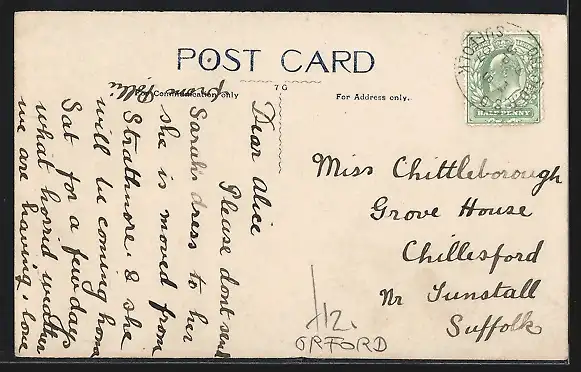 POST CARD
7G
For Communication only
For Address only.
Dear Alice
Please dont send
Sarah's dress to her
she is moved from
Strathmore & she
will be coming home
Sat for a few days
what horrid weather
we are having. love
from
Miss Chittleborough
Grove House
Chillesford
Nr Tunstall
Suffolk
12.
ORFORD
HALF PENNY
SUFFOLK